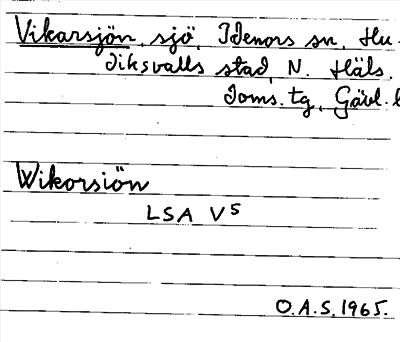 Vikarsjön, sjö, Idenors sn, Hu-
diksvalls stad, N. Häls.
doms. tg, Gävl. l
Wikorsiön
LSA V5
O.A.S. 1965.